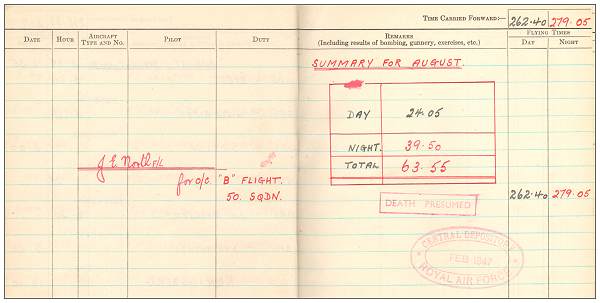 TIME CARRIED FORWARD:— 262.40 279.05
DATE HOUR AIRCRAFT TYPE AND NO. PILOT DUTY REMARKS (Including results of bombing, gunnery, exercises, etc.) FLYING TIMES DAY NIGHT
SUMMARY FOR AUGUST.
DAY 24.05
NIGHT. 39.50
TOTAL 63.55
J E North F/L
for O/C. "B" FLIGHT.
50. SQDN.
262.40 279.05
DEATH PRESUMED
CENTRAL DEPOSITORY
FEB 1947
ROYAL AIR FORCE